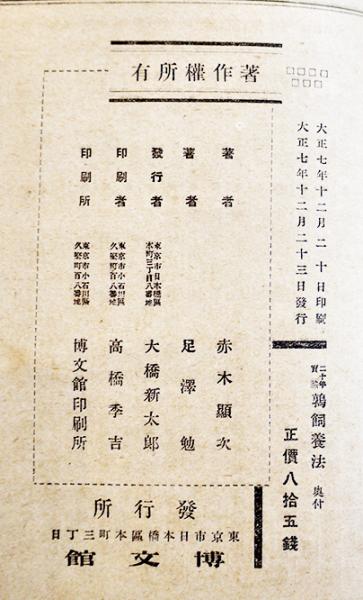 大正七年十二月二十日印刷
大正七年十二月二十三日發行
二十年
實驗
鶉飼養法
奧付
正價八拾五錢
著作權所有
著者
赤木顯次
著者
足澤勉
發行者
東京市日本橋區
本町三丁目八番地
大橋新太郎
印刷者
東京市小石川區
久堅町百八番地
高橋季吉
印刷所
東京市小石川區
久堅町百八番地
博文館印刷所
發行所
東京市日本橋區本町三丁目
博文館